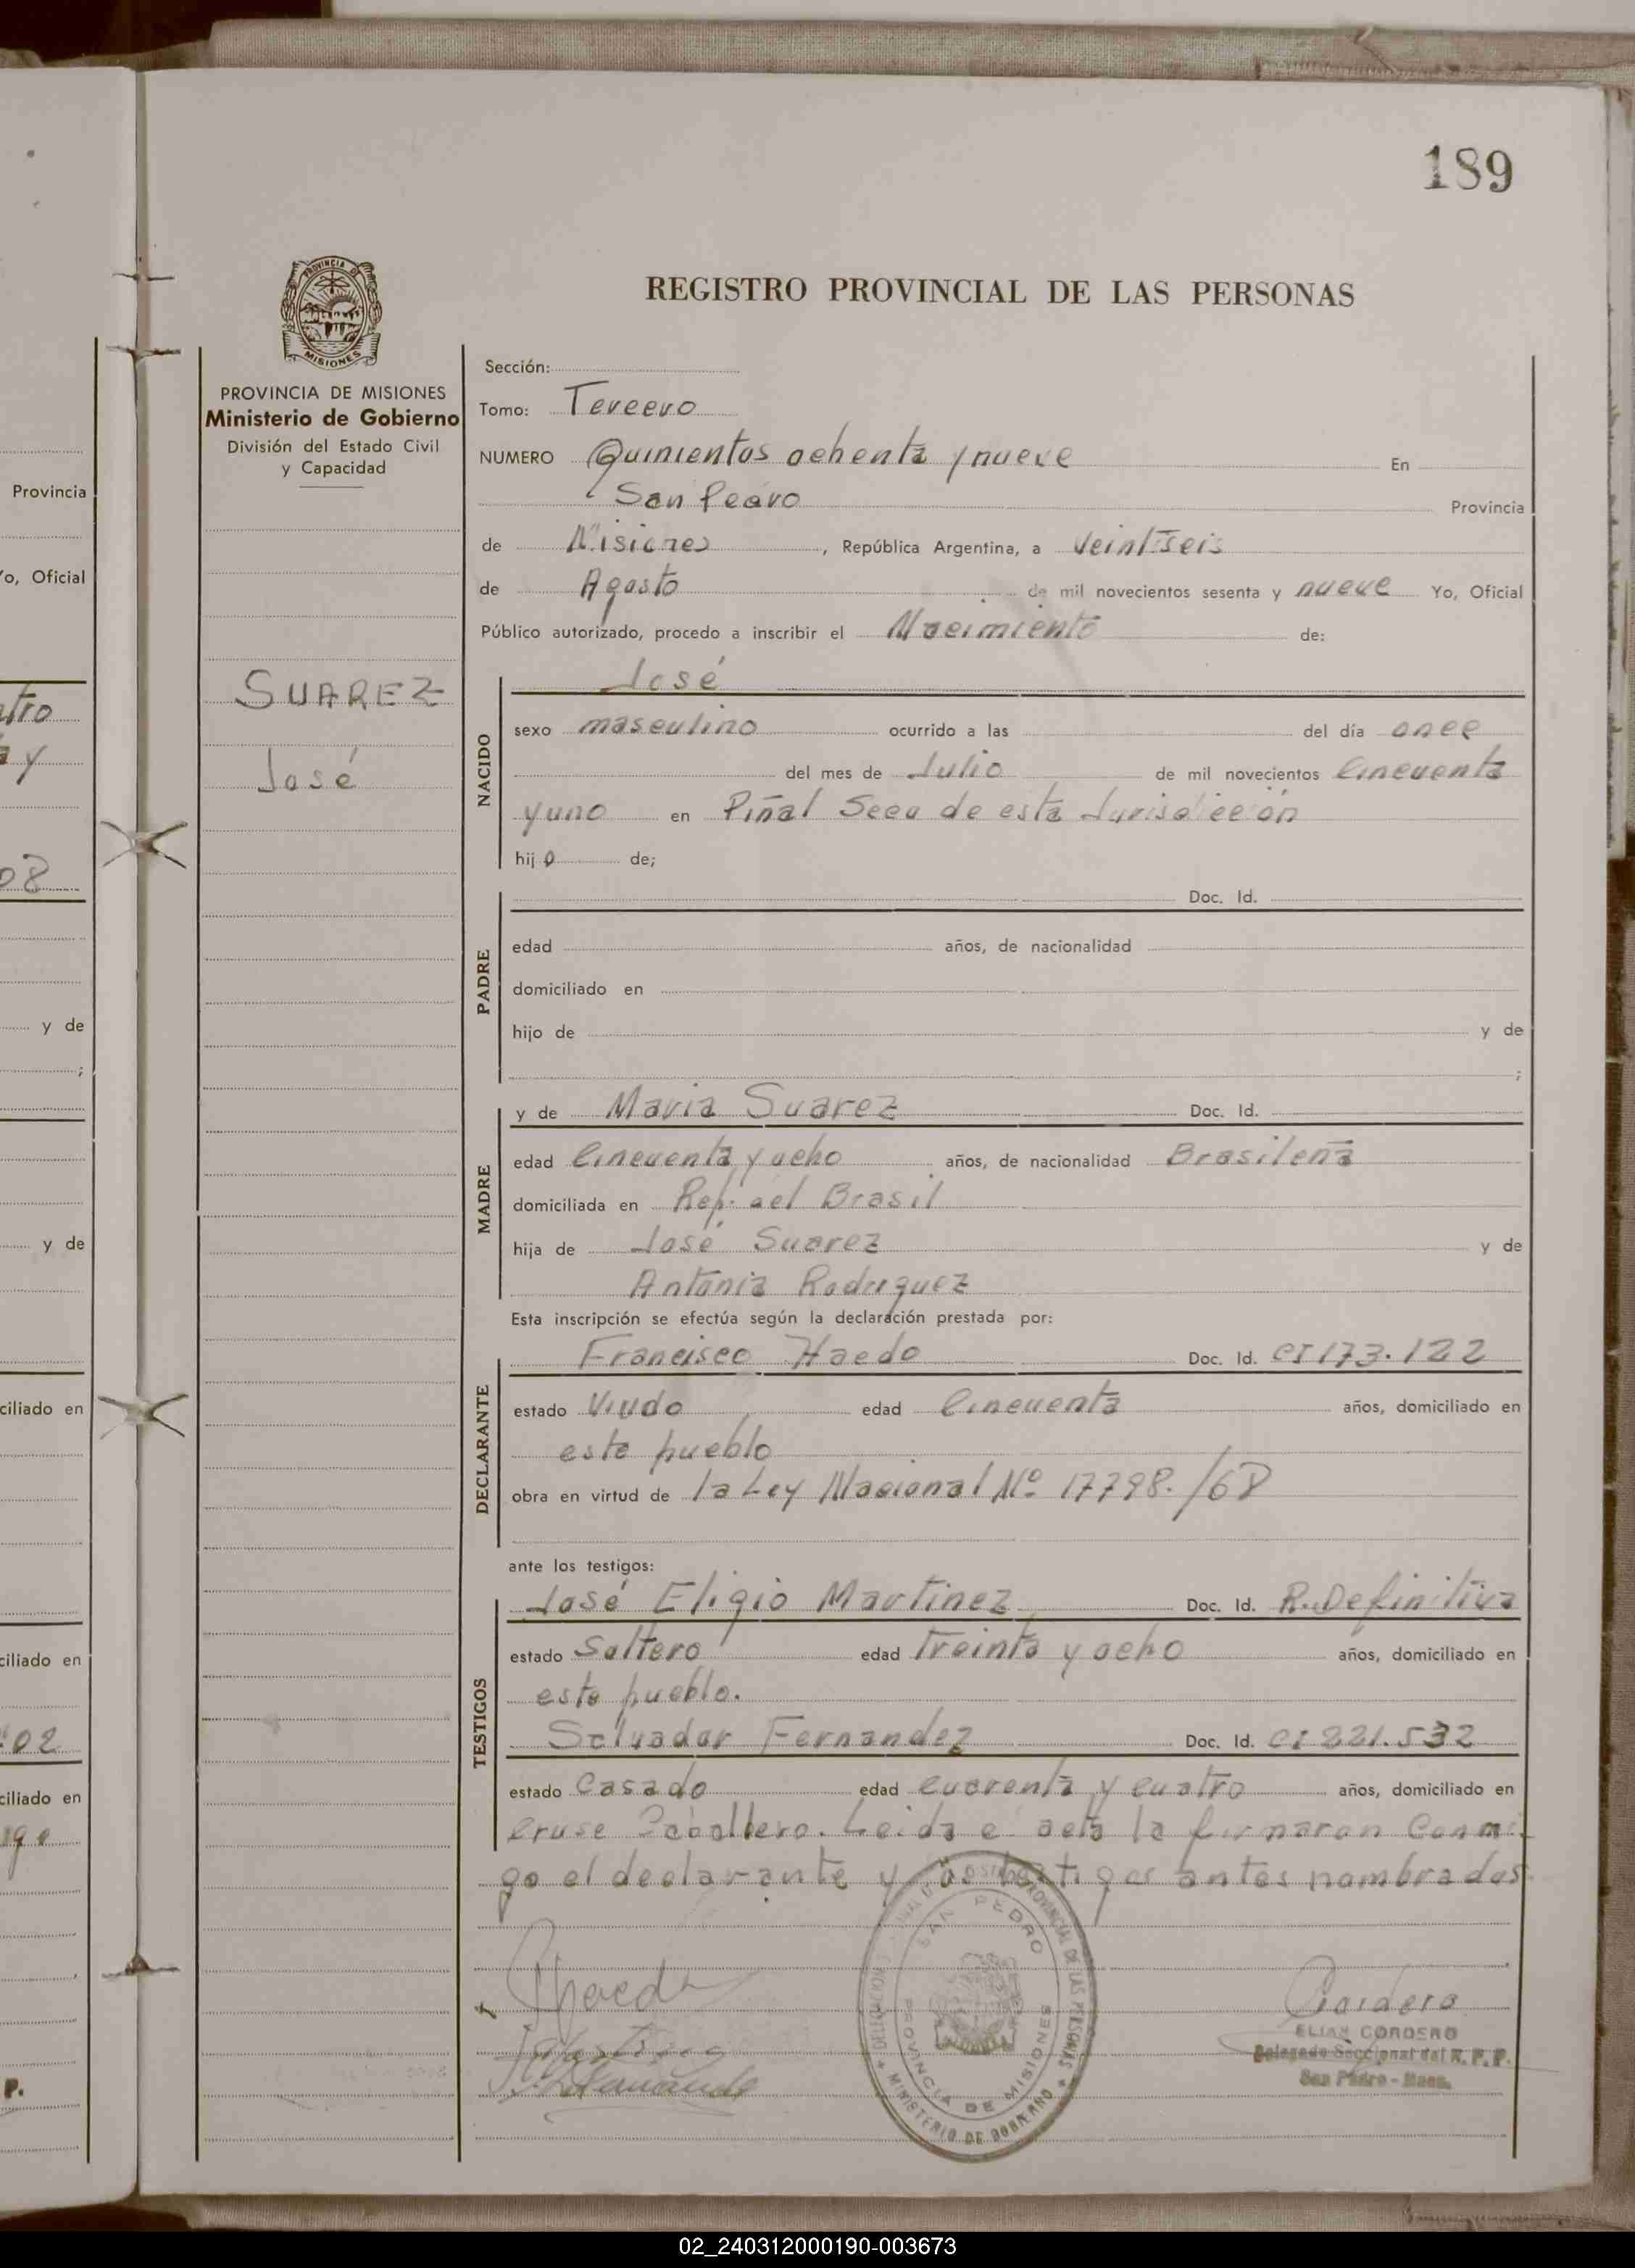 189
REGISTRO PROVINCIAL DE LAS PERSONAS
PROVINCIA DE
MISIONES
PROVINCIA DE MISIONES
Ministerio de Gobierno
División del Estado Civil
y Capacidad
SUAREZ
José
Sección:
Tomo: Tercero
NUMERO Quinientos ochenta y nueve En
San Pedro Provincia
de Misiones, República Argentina, a veintiseis
de Agosto de mil novecientos sesenta y nueve Yo, Oficial
Público autorizado, procedo a inscribir el Nacimiento de:
NACIDO
José
sexo masculino ocurrido a las del día once
del mes de Julio de mil novecientos cincuenta
y uno en Piñal Seco de esta Jurisdicción
hijo de;
PADRE
Doc. Id.
edad años, de nacionalidad
domiciliado en
hijo de y de
;
MADRE
y de Maria Suarez Doc. Id.
edad cincuenta y ocho años, de nacionalidad Brasileña
domiciliada en Rep. del Brasil
hija de José Suarez y de
Antonia Rodriguez
Esta inscripción se efectúa según la declaración prestada por:
DECLARANTE
Francisco Haedo Doc. Id. CI 173.122
estado Viudo edad cincuenta años, domiciliado en
este pueblo
obra en virtud de la Ley Nacional Nº 17798./68
ante los testigos:
TESTIGOS
José Eligio Martinez Doc. Id. R. Definitiva
estado Soltero edad treinta y ocho años, domiciliado en
este pueblo.
Salvador Fernandez Doc. Id. CI 221.532
estado casado edad cuarenta y cuatro años, domiciliado en
cruse Caballero. Leida el acta la firmaron conmi-
go el declarante y los testigos antes nombrados
Haedo
Cordero
ELIAS CORDERO
Delegado Seccional del R. P. P.
San Pedro - Mnes.
SAN PEDRO
PROVINCIA DE MISIONES
REGISTRO PROVINCIAL DE LAS PERSONAS
MINISTERIO DE GOBIERNO
Provincia
Yo, Oficial
y de
;
y de
ciliado en
ciliado en
02
ciliado en
P.
02_240312000190-003673